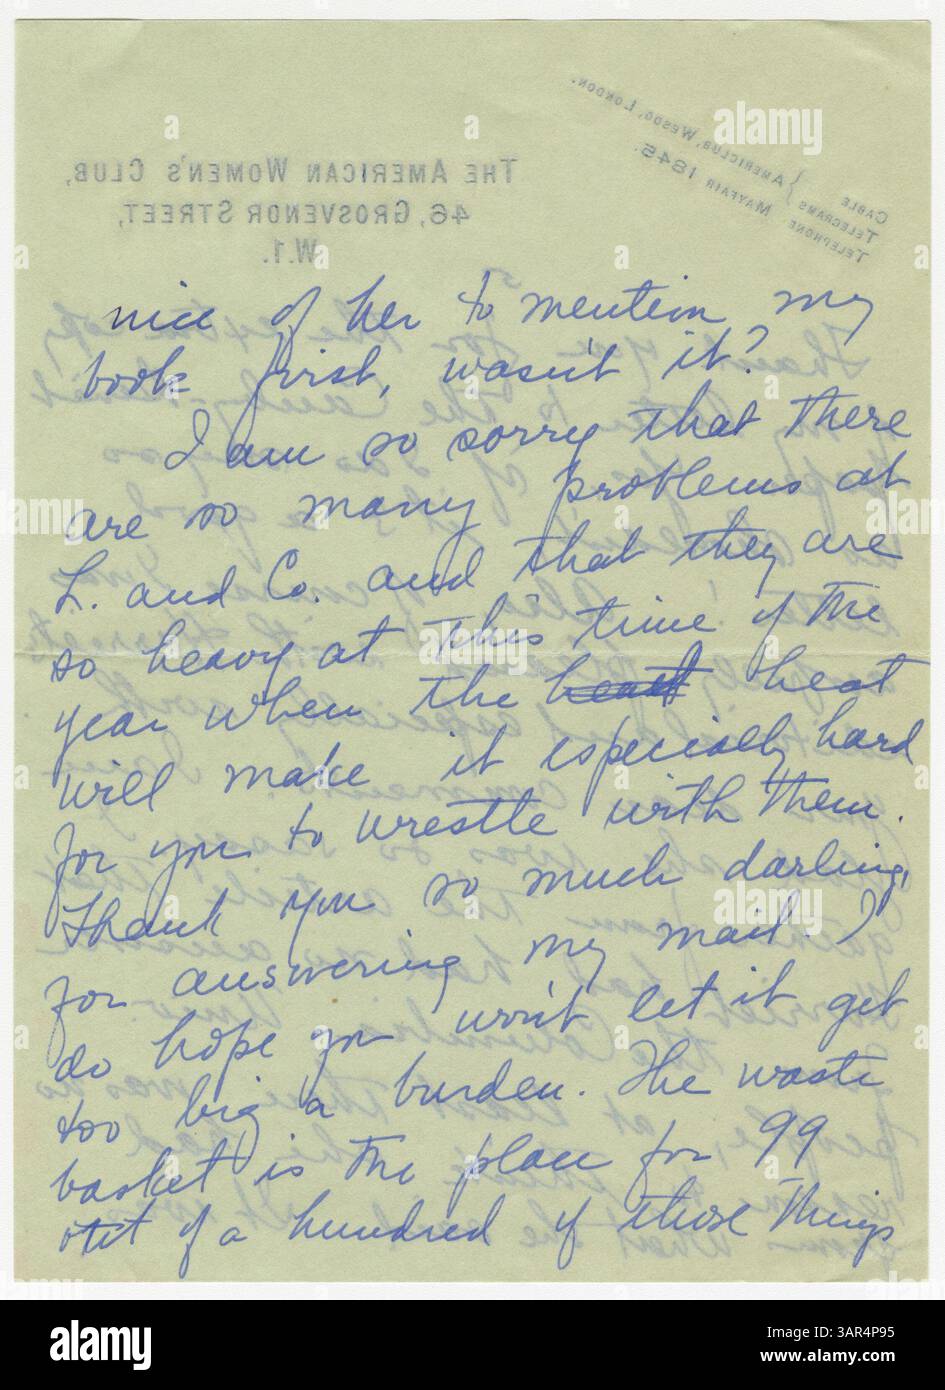 THE AMERICAN WOMEN'S CLUB,
46, GROSVENOR STREET,
W.1.
CABLE
TELEGRAMS } AMERICLUB, WESDO, LONDON.
TELEPHONE MAYFAIR 1845.
nice of her to mention my
book first, wasn't it?
I am so sorry that there
are so many problems at
L. and Co. and that they are
so heavy at this time of the
year when the heat heat
will make it especially hard
for you to wrestle with them.
Thank you so much darling,
for answering my mail. I
do hope you won't let it get
too big a burden. The waste
basket is the place for 99
out of a hundred of those things
alamy
Image ID: 3AR4P95
www.alamy.com